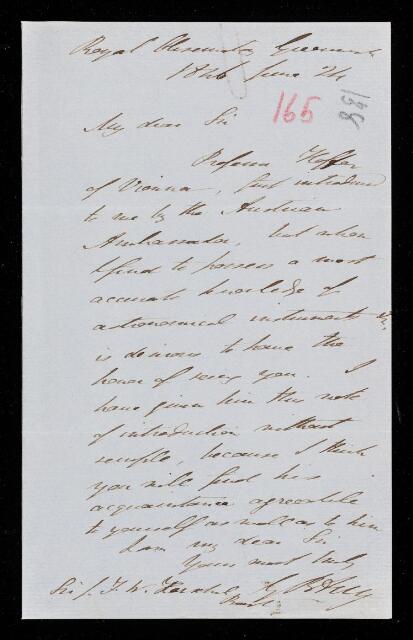 Royal Observatory Greenwich
1846 June 24
165
My dear Sir
Professor
of Vienna, first introduced
to me by the Austrian
Ambassador, but whom
I find to possess a most
accurate knowledge of
astronomical instruments &c,
is desirous to have the
honor of seeing you. I
have given him this note
of introduction without
scruple, because I think
you will find his
acquaintance agreeable
to yourself as well as to him
I am my dear Sir
Yours most truly
G B Airy
Sir J. F. W. Herschel